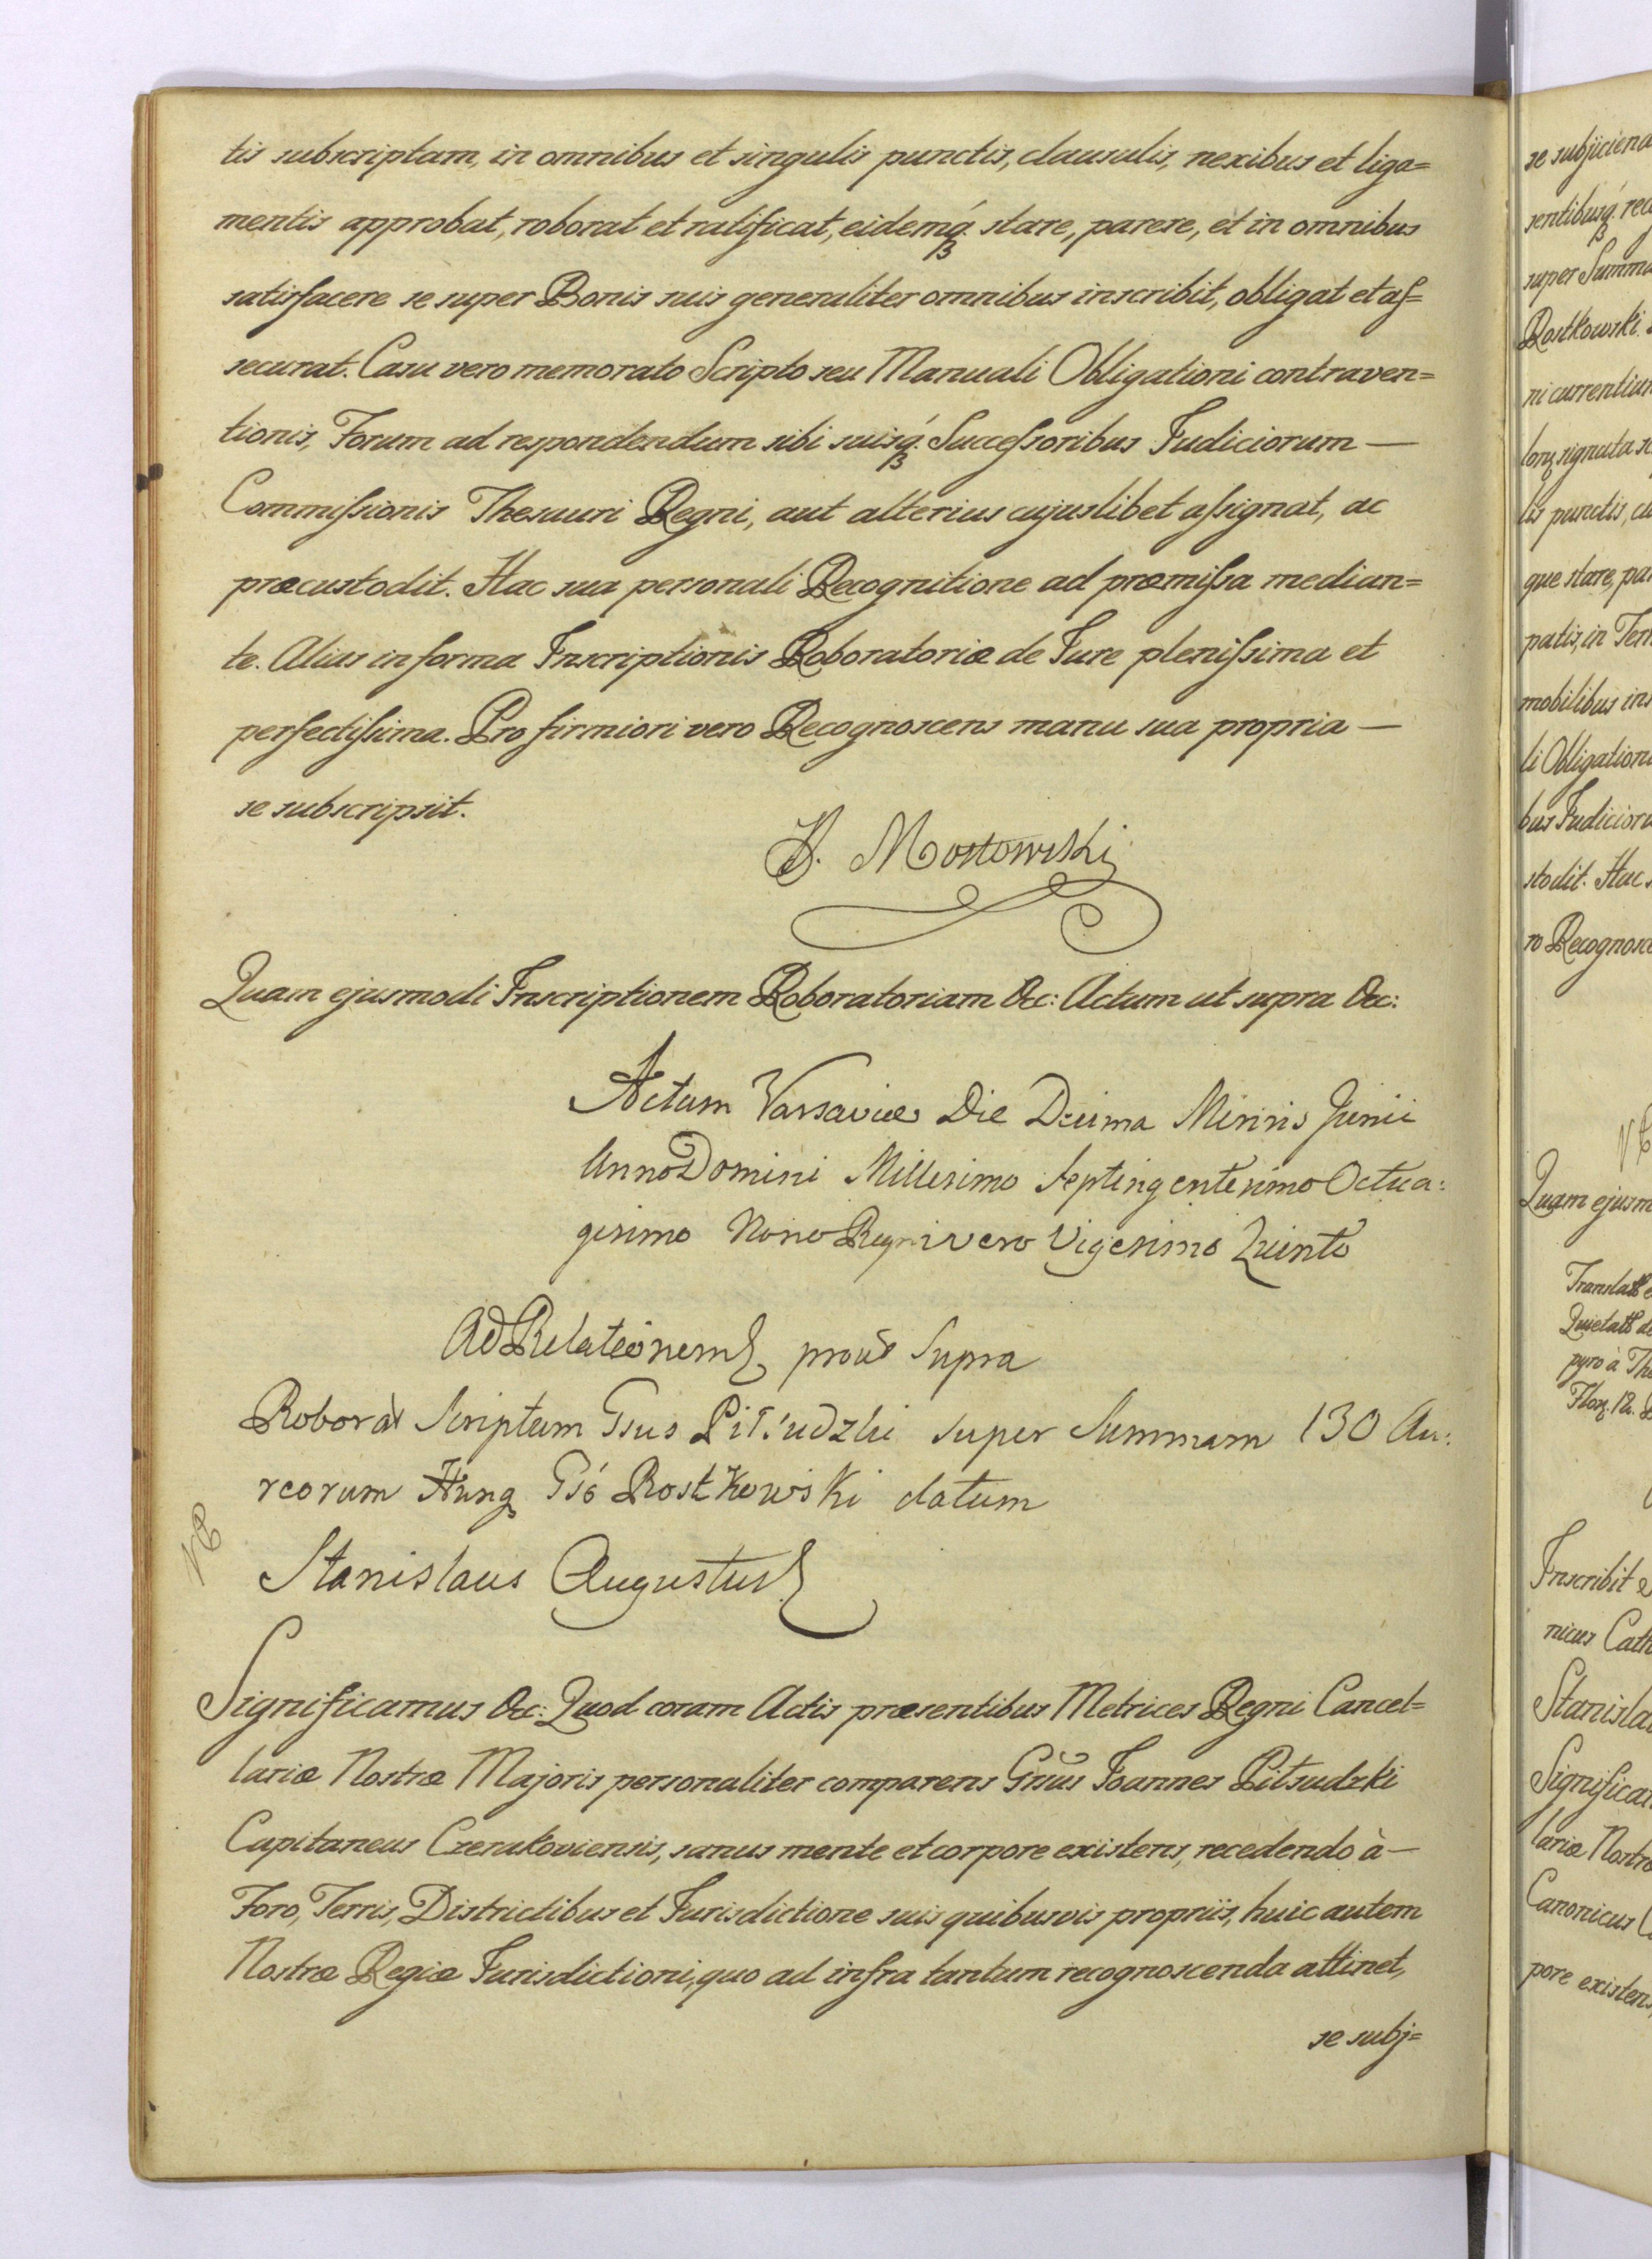 tis subscriptam, in omnibus et singulis punctis, clausulis, nexibus et liga=
mentis approbat, roborat et ratificat, eidemq́ꝫ stare, parere, et in omnibus
satisfacere se super Bonis suis generaliter omnibus inscribit, obligat et aſ=
securat. Casu vero memorato Scripto seu Manuali Obligationi contraven=
tionis, Forum ad respondendum sibi suisq́ꝫ Succeſsoribus Judiciorum —
Commiſsionis Thesauri Regni, aut alterius cujuslibet aſsignat, ac
præcustodit. Hac sua personali Recognitione ad præmiſsa median=
te. Alias in forma Inscriptionis Roboratoriæ de Jure pleniſsima et
perfectiſsima. Pro firmiori vero Recognoscens manu sua propria —
se subscripsit.
Mostowski
Quam ejusmodi Inscriptionem Roboratoriam &c: Actum ut supra &c:
Actum Varsaviæ Die Decima Mensis Junii
Anno Domini Millesimo Septingentesimo Octua:
gesimo Nono Regni vero Vigesimo Quinto
Ad Relationem prout Supra
Roborat Scriptum Gsus Piłsudzki super Summam 130 Au:
reorum Hung Gsó Rostkowski datum
NB
Stanislaus Augustus
Significamus &c: Quod coram Actis præsentibus Metrices Regni Cancel=
lariæ Nostræ Majoris personaliter comparens Gsus Joannes Piłsudzki
Capitaneus Czerukoviensis, sanus mente et corpore existens, recedendo à —
Foro, Terris, Districtibus et Jurisdictione suis quibusvis propriis, huic autem
Nostræ Regiæ Jurisdictioni, quo ad infra tantum recognoscenda attinet,
se subj=
se subjiciend
super Summa
Rostkowski
ni currentium
signata
lis punctis,
que stare, pa
patis, in Terr
mobilibus ins
li Obligation
bus Judicioru
stodit. Hac
ro Recognosce
Quam ejusm
Inscribit
nicus Cath
Stanisla
Significa
lariæ Nostr
Canonicus
pore existens,